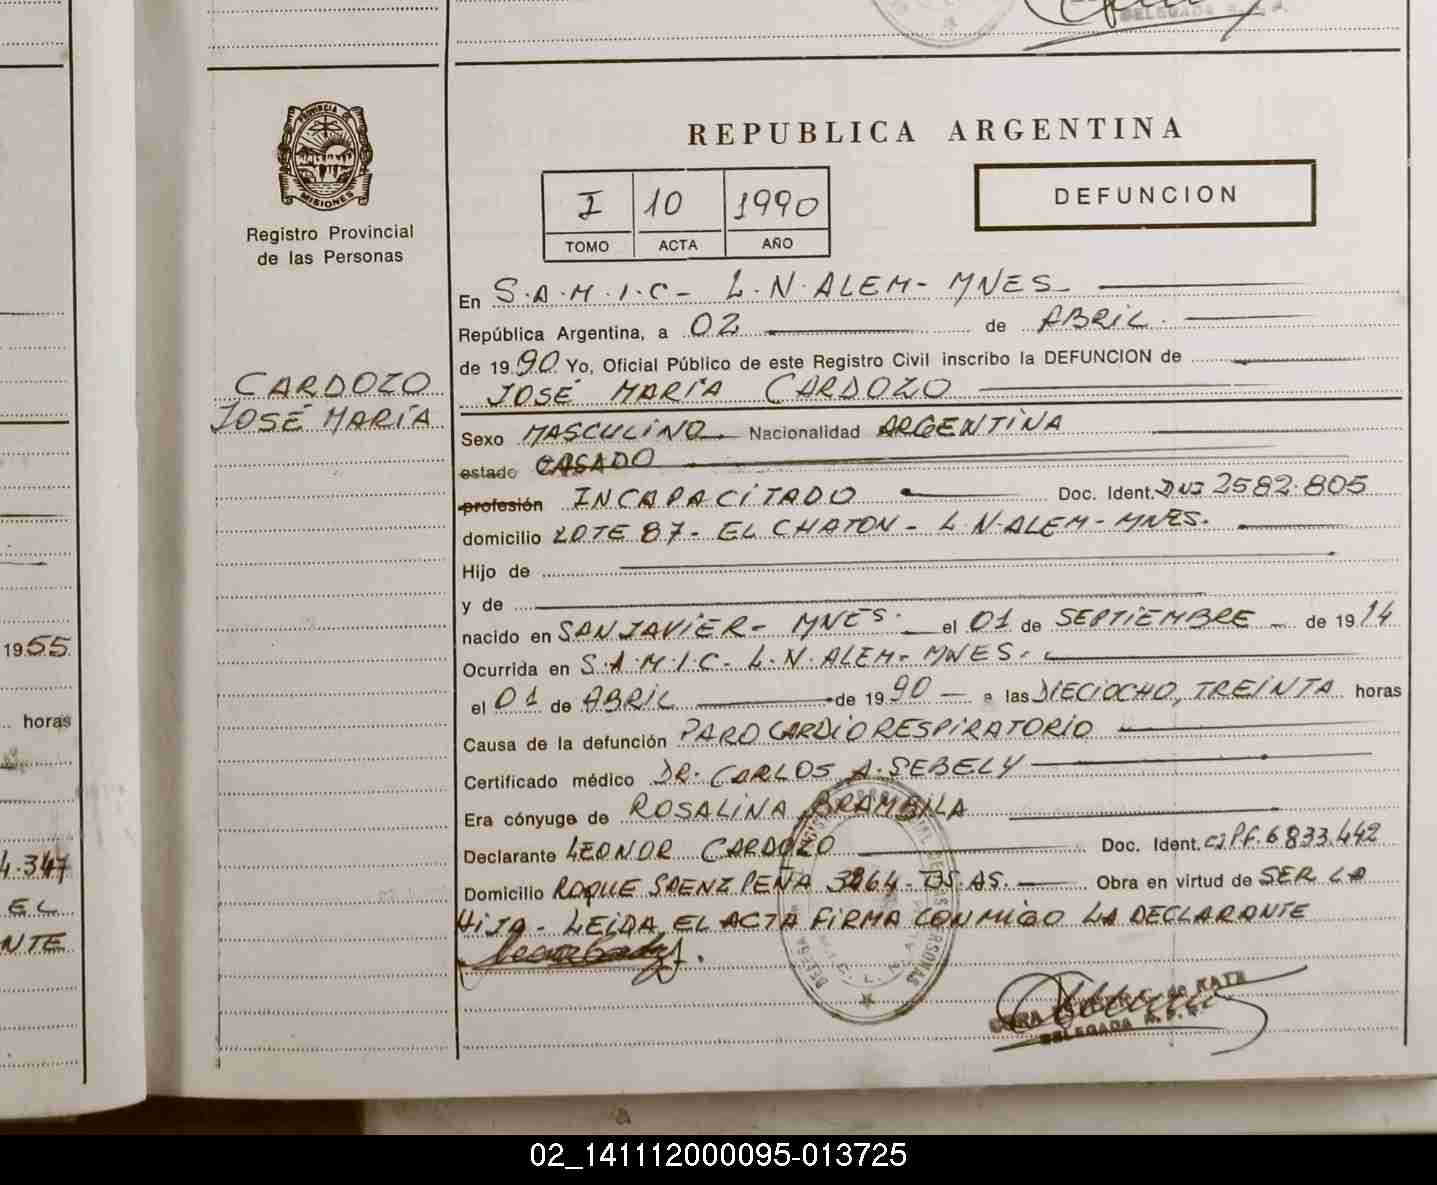 DELEGADA
PROVINCIA DE
MISIONES
Registro Provincial
de las Personas
CARDOZO
JOSÉ MARÍA
REPUBLICA ARGENTINA
I 10 1990
TOMO ACTA AÑO
DEFUNCION
En S.A.M.I.C- L.N.ALEM- MNES-
República Argentina, a 02 de ABRIL.
de 1990 Yo, Oficial Público de este Registro Civil inscribo la DEFUNCION de
JOSÉ MARÍA CARDOZO
Sexo MASCULINO. Nacionalidad ARGENTINA
estado CASADO
profesión INCAPACITADO Doc. Ident. DNI 2582.805
domicilio LOTE 87- EL CHATON- L.N.ALEM-MNES.
Hijo de
y de
nacido en SAN JAVIER- MNES. el 01 de SEPTIEMBRE de 1914
Ocurrida en S.A.M.I.C- L.N.ALEM- MNES.
el 01 de ABRIL de 1990 a las DIECIOCHO, TREINTA horas
Causa de la defunción PARO CARDIORESPIRATORIO
Certificado médico DR. CARLOS A. SEBELY
Era cónyuge de ROSALINA BRAMBILA
Declarante LEONOR CARDOZO Doc. Ident. CIPF.6833.442
Domicilio ROQUE SAENZ PEÑA 3264- BS.AS. Obra en virtud de SER LA
HIJA- LEIDA EL ACTA FIRMA CONMIGO LA DECLARANTE
DE KATZ
DELEGADA R.P.P.
1955
horas
4.347
EL
NTE
02_141112000095-013725